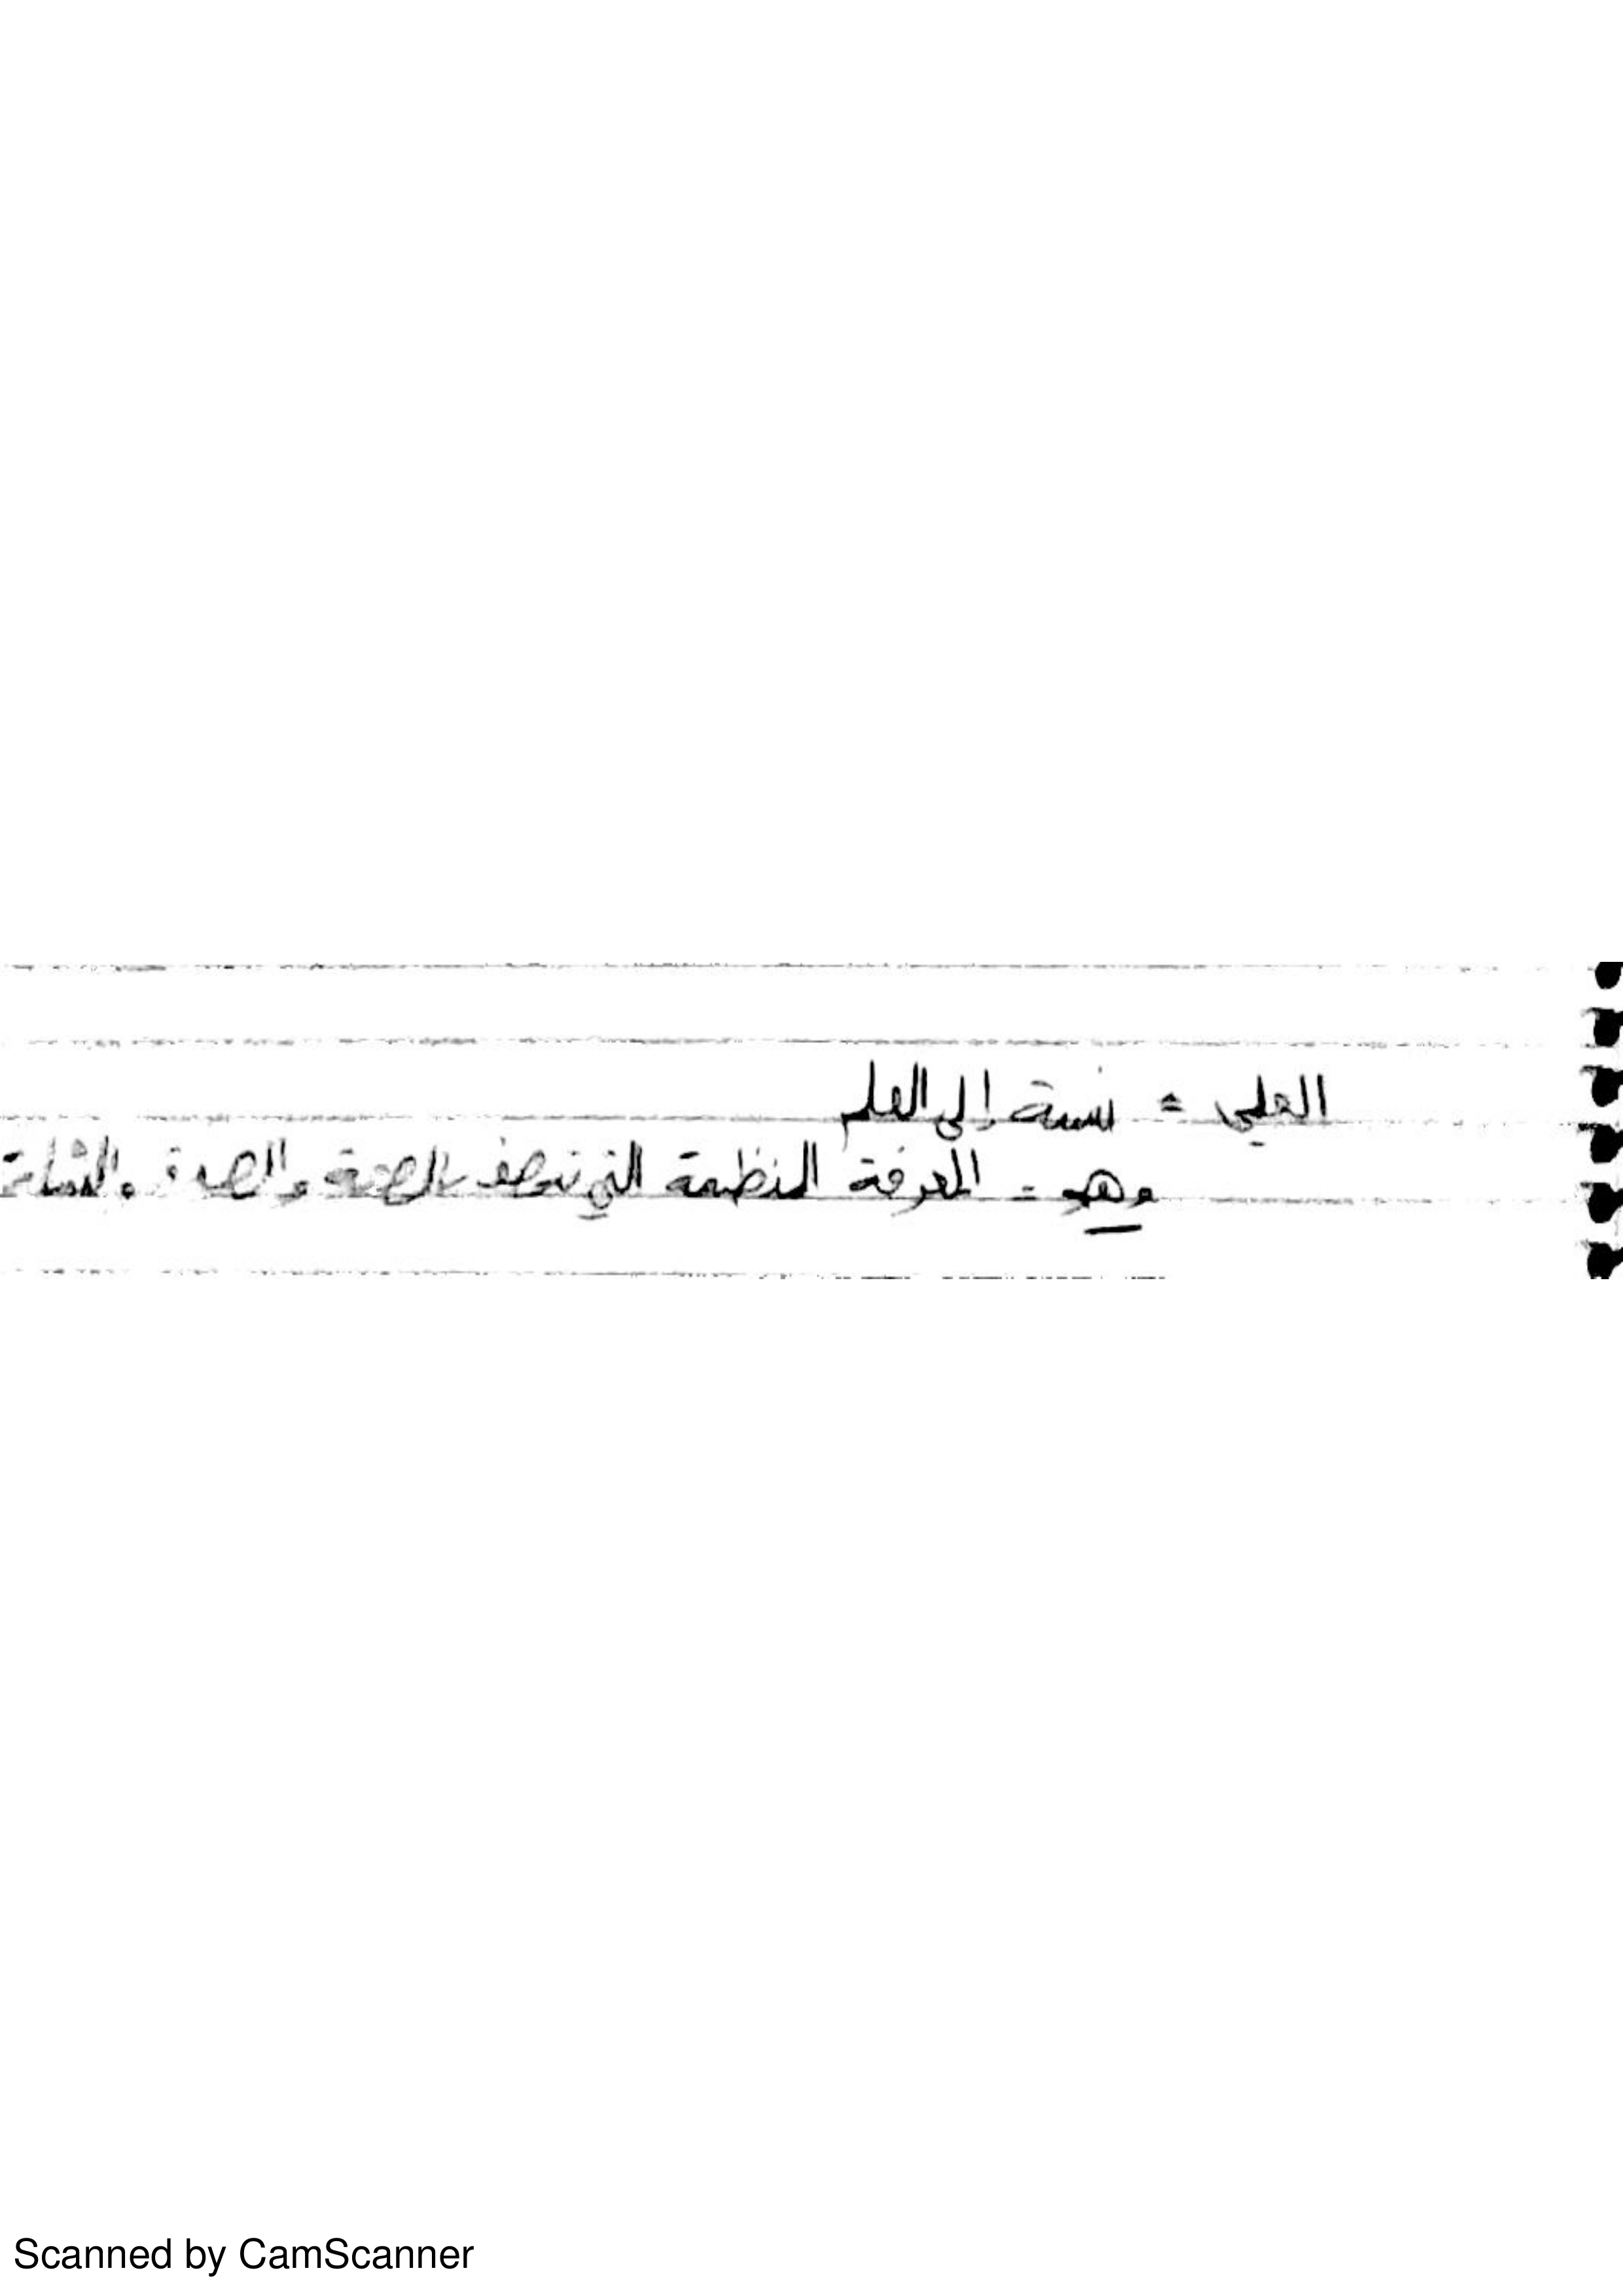 العلمي = نسبة إلى العلم
وهو = المعرفة المنظمة التي تتصف بالصحة والصدق والثبات
Scanned by CamScanner